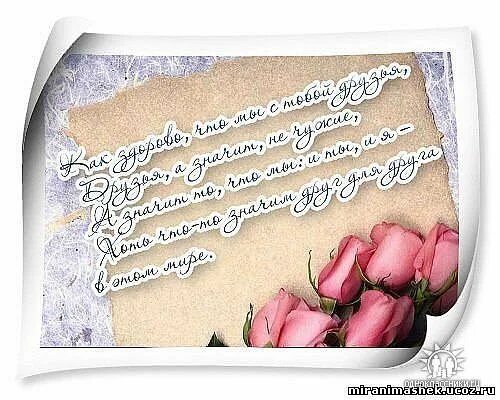 Как здорово, что мы с тобой друзья,
Друзья, а значит, не чужие,
А значит то, что мы: и ты, и я –
Хоть что-то значим друг для друга
в этом мире.
одноклассники.ru
miranimashek.ucoz.ru